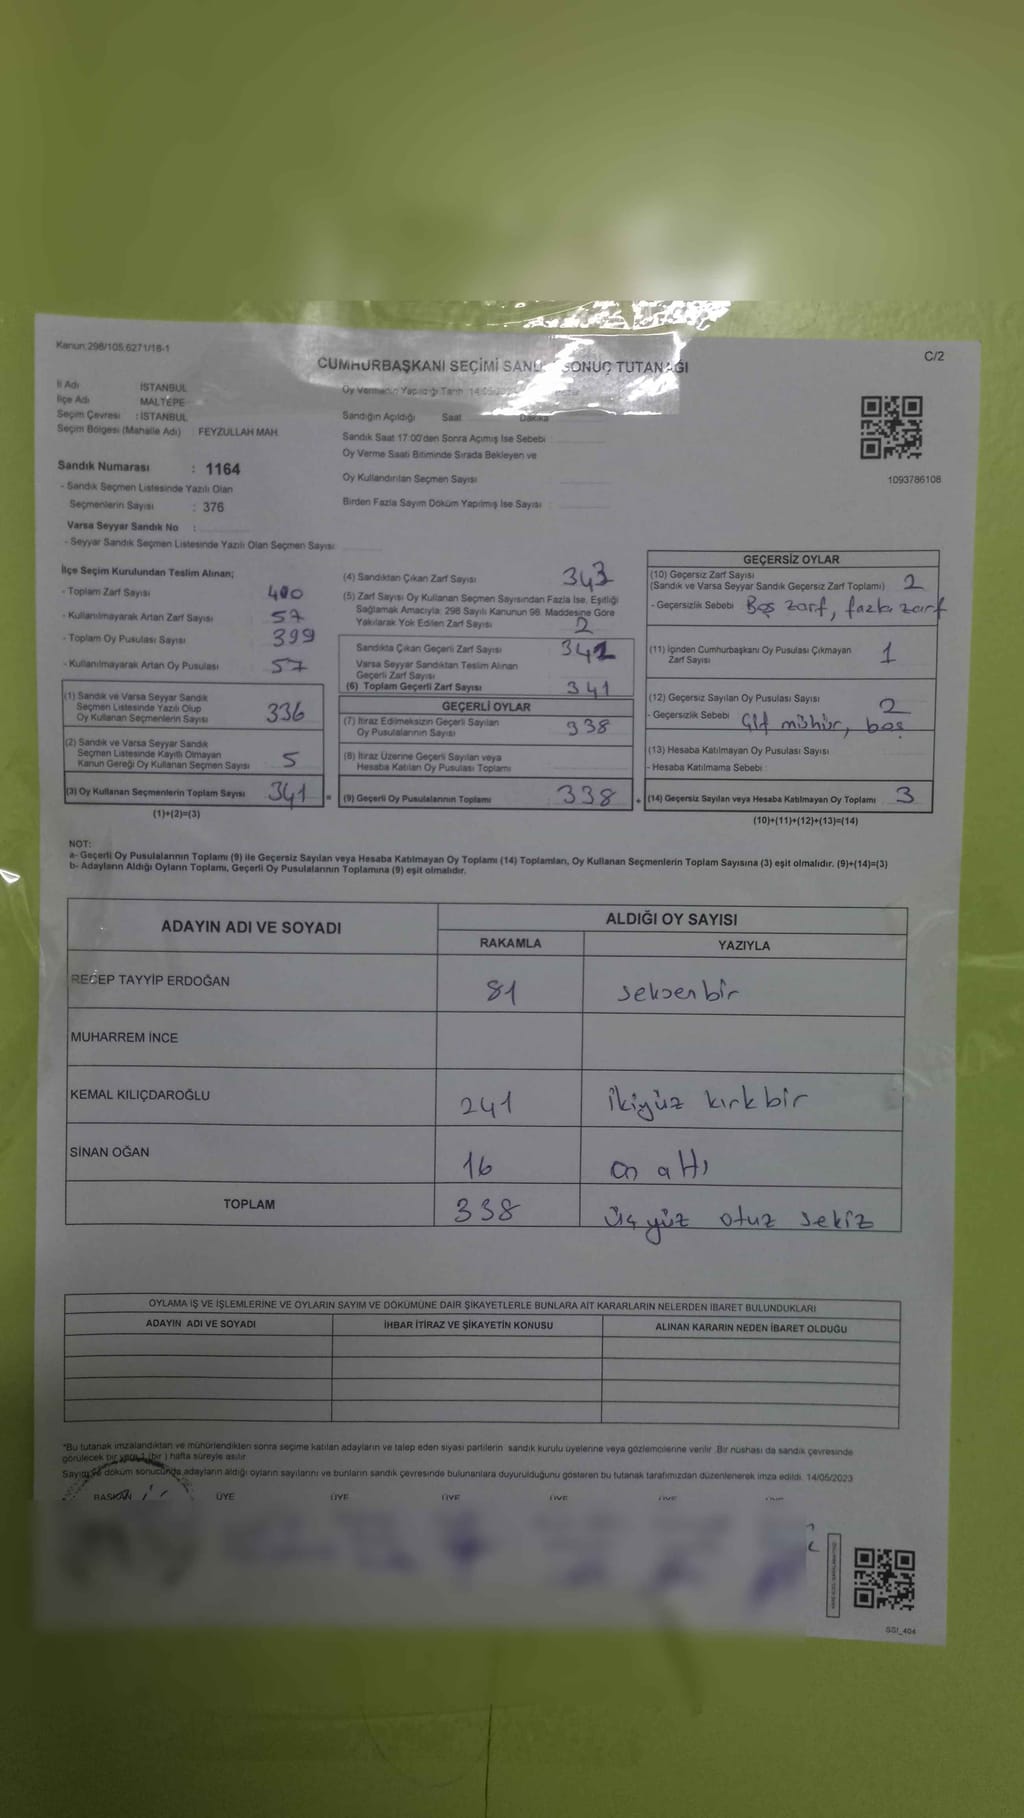 Kanun:298/105,6271/18-1
C/2
CUMHURBAŞKANI SEÇİMİ SONUÇ TUTANAĞI
İl Adı İSTANBUL
İlçe Adı MALTEPE
Seçim Çevresi : İSTANBUL
Seçim Bölgesi (Mahalle Adı) : FEYZULLAH MAH.
Oy Vermenin Yapıldığı Tarih
Sandığın Açıldığı Saat Dakika
Sandık Saat 17:00'den Sonra Açılmış İse Sebebi :
Oy Verme Saati Bitiminde Sırada Bekleyen ve
Oy Kullandırılan Seçmen Sayısı
Birden Fazla Sayım Döküm Yapılmış İse Sayısı :
1093786108
Sandık Numarası : 1164
- Sandık Seçmen Listesinde Yazılı Olan
Seçmenlerin Sayısı : 376
Varsa Seyyar Sandık No :
- Seyyar Sandık Seçmen Listesinde Yazılı Olan Seçmen Sayısı:
İlçe Seçim Kurulundan Teslim Alınan;
- Toplam Zarf Sayısı 400
- Kullanılmayarak Artan Zarf Sayısı 57
- Toplam Oy Pusulası Sayısı 399
- Kullanılmayarak Artan Oy Pusulası 57
(1) Sandık ve Varsa Seyyar Sandık
Seçmen Listesinde Yazılı Olup
Oy Kullanan Seçmenlerin Sayısı 336
(2) Sandık ve Varsa Seyyar Sandık
Seçmen Listesinde Kayıtlı Olmayan
Kanun Gereği Oy Kullanan Seçmen Sayısı 5
(3) Oy Kullanan Seçmenlerin Toplam Sayısı 341 =
(1)+(2)=(3)
(4) Sandıktan Çıkan Zarf Sayısı 343
(5) Zarf Sayısı Oy Kullanan Seçmen Sayısından Fazla İse, Eşitliği
Sağlamak Amacıyla; 298 Sayılı Kanunun 98. Maddesine Göre
Yakılarak Yok Edilen Zarf Sayısı 2
Sandıkta Çıkan Geçerli Zarf Sayısı 341
Varsa Seyyar Sandıktan Teslim Alınan
Geçerli Zarf Sayısı
(6) Toplam Geçerli Zarf Sayısı 341
GEÇERLİ OYLAR
(7) İtiraz Edilmeksizin Geçerli Sayılan
Oy Pusulalarının Sayısı 338
(8) İtiraz Üzerine Geçerli Sayılan veya
Hesaba Katılan Oy Pusulası Toplamı
(9) Geçerli Oy Pusulalarının Toplamı 338 +
GEÇERSİZ OYLAR
(10) Geçersiz Zarf Sayısı
(Sandık ve Varsa Seyyar Sandık Geçersiz Zarf Toplamı) 2
- Geçersizlik Sebebi Boş zarf, fazla zarf
(11) İçinden Cumhurbaşkanı Oy Pusulası Çıkmayan
Zarf Sayısı 1
(12) Geçersiz Sayılan Oy Pusulası Sayısı 2
- Geçersizlik Sebebi Çift mühür, boş
(13) Hesaba Katılmayan Oy Pusulası Sayısı
- Hesaba Katılmama Sebebi :
(14) Geçersiz Sayılan veya Hesaba Katılmayan Oy Toplamı 3
(10)+(11)+(12)+(13)=(14)
NOT:
a- Geçerli Oy Pusulalarının Toplamı (9) ile Geçersiz Sayılan veya Hesaba Katılmayan Oy Toplamı (14) Toplamları, Oy Kullanan Seçmenlerin Toplam Sayısına (3) eşit olmalıdır. (9)+(14)=(3)
b- Adayların Aldığı Oyların Toplamı, Geçerli Oy Pusulalarının Toplamına (9) eşit olmalıdır.
ADAYIN ADI VE SOYADI
ALDIĞI OY SAYISI
RAKAMLA YAZIYLA
RECEP TAYYİP ERDOĞAN 81 seksen bir
MUHARREM İNCE
KEMAL KILIÇDAROĞLU 241 ikiyüz kırk bir
SİNAN OĞAN 16 on altı
TOPLAM 338 üç yüz otuz sekiz
OYLAMA İŞ VE İŞLEMLERİNE VE OYLARIN SAYIM VE DÖKÜMÜNE DAİR ŞİKAYETLERLE BUNLARA AİT KARARLARIN NELERDEN İBARET BULUNDUKLARI
ADAYIN ADI VE SOYADI İHBAR İTİRAZ VE ŞİKAYETİN KONUSU ALINAN KARARIN NEDEN İBARET OLDUĞU
*Bu tutanak imzalandıktan ve mühürlendikten sonra seçime katılan adayların ve talep eden siyasi partilerin sandık kurulu üyelerine veya gözlemcilerine verilir. Bir nüshası da sandık çevresinde
görülecek bir yere 1 (bir) hafta süreyle asılır.
Sayım ve döküm sonucunda adayların aldığı oyların sayılarını ve bunların sandık çevresinde bulunanlara duyurulduğunu gösteren bu tutanak tarafımızdan düzenlenerek imza edildi. 14/05/2023
BAŞKAN ÜYE ÜYE ÜYE ÜYE ÜYE
SSI_404